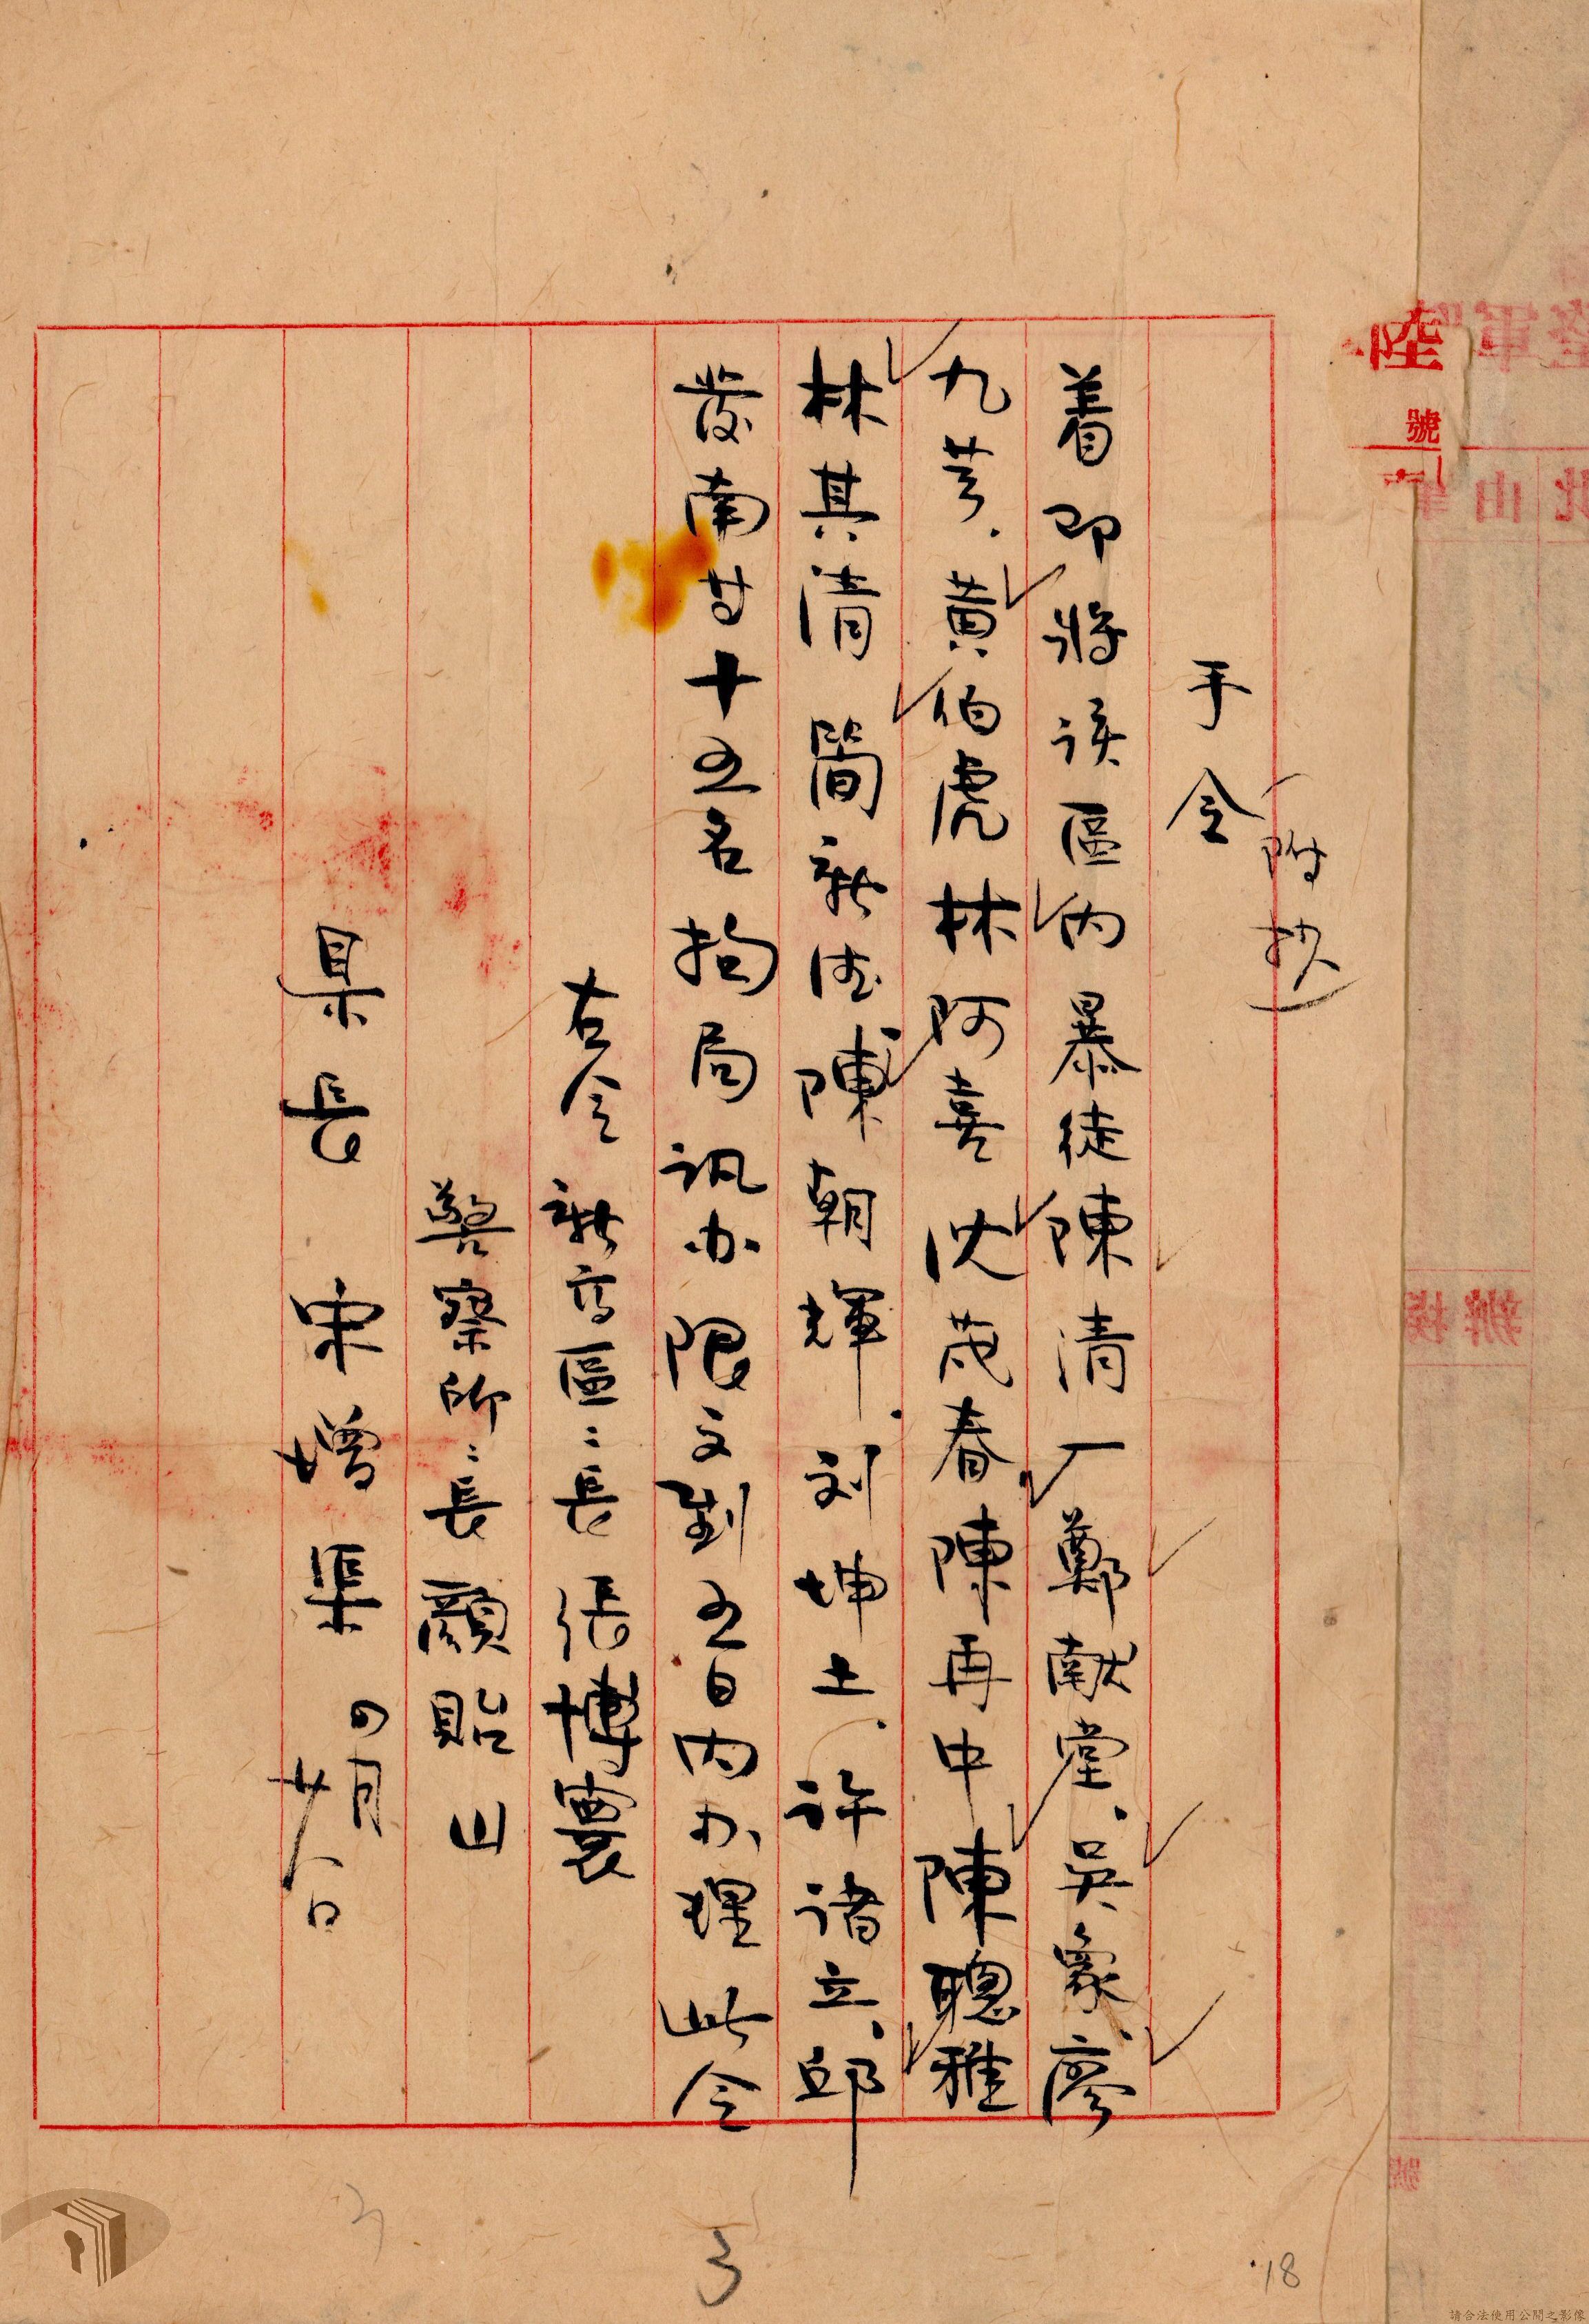 手令
（附抄）
着即將該區內暴徒陳清厂鄭献堂、吳象、廖
九芎、黃伯虎林阿喜沈茂春陳再中陳聰雅
林其清簡新德陳朝輝、刘坤土、許諸立、邱
發南廿十五名拘局訊办限文到五日內办理此令
右令新高區〻長張博寰
警察所〻長顏貽山
县長宋增榘
四月廿八日
陸
號
3
18
請合法使用公開之影像